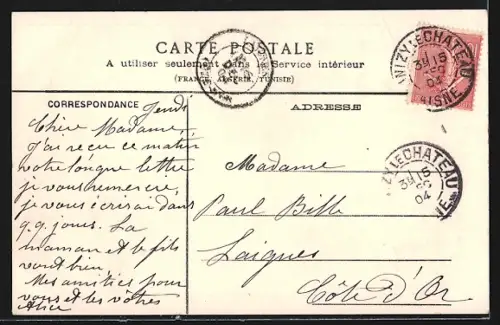 CARTE POSTALE
A utiliser seulement dans le Service intérieur
(FRANCE, ALGÉRIE, TUNISIE)
CORRESPONDANCE
ADRESSE
Jeudi
Chère Madame,
J'ai reçu ce matin
votre longue lettre
je vous remercie,
je vous écrirai dans
q.q. jours. La
maman et le fils
vont bien
Mes amitiés pour
vous et les vôtres
Alice
Madame
Paul Bille
Laignes
Côte d'Or
ANIZY LE CHATEAU
3E 15
04
AISNE
ZY LE CHATEAU
3E 15
04
NE